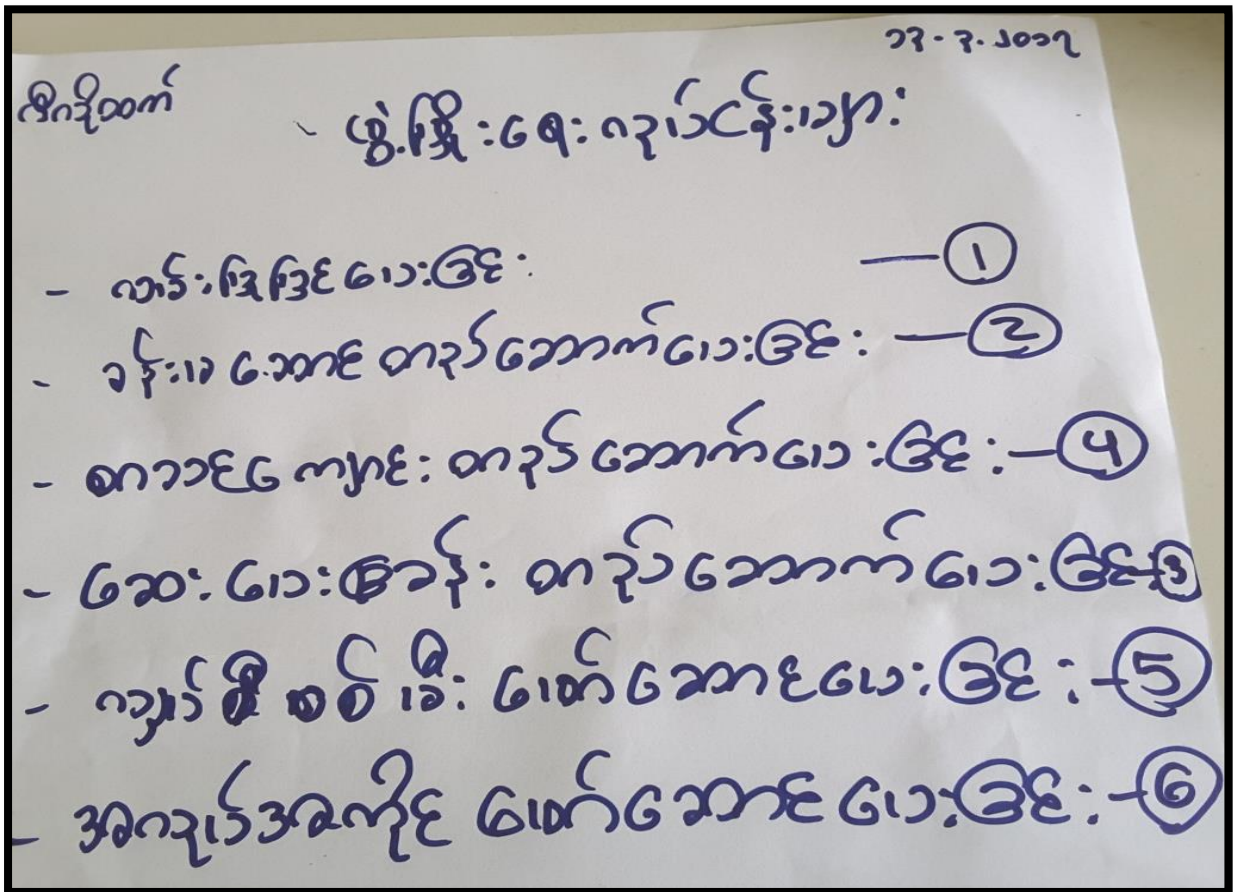 ၁၃-၃-၂၀၁၇
- ဖွံ့ဖြိုးရေး လုပ်ငန်းများ
- လမ်းပြုပြင်ပေးခြင်း — 1
- ခန်းမဆောင် တည်ဆောက်ပေးခြင်း — 2
- စာသင်ကျောင်း တည်ဆောက်ပေးခြင်း — 4
- ဆေးပေးခန်း တည်ဆောက်ပေးခြင်း - 3
- လျှပ်စစ်မီး ဖော်ဆောင်ပေးခြင်း - 5
- အလုပ်အကိုင် ဖော်ဆောင်ပေးခြင်း - 6